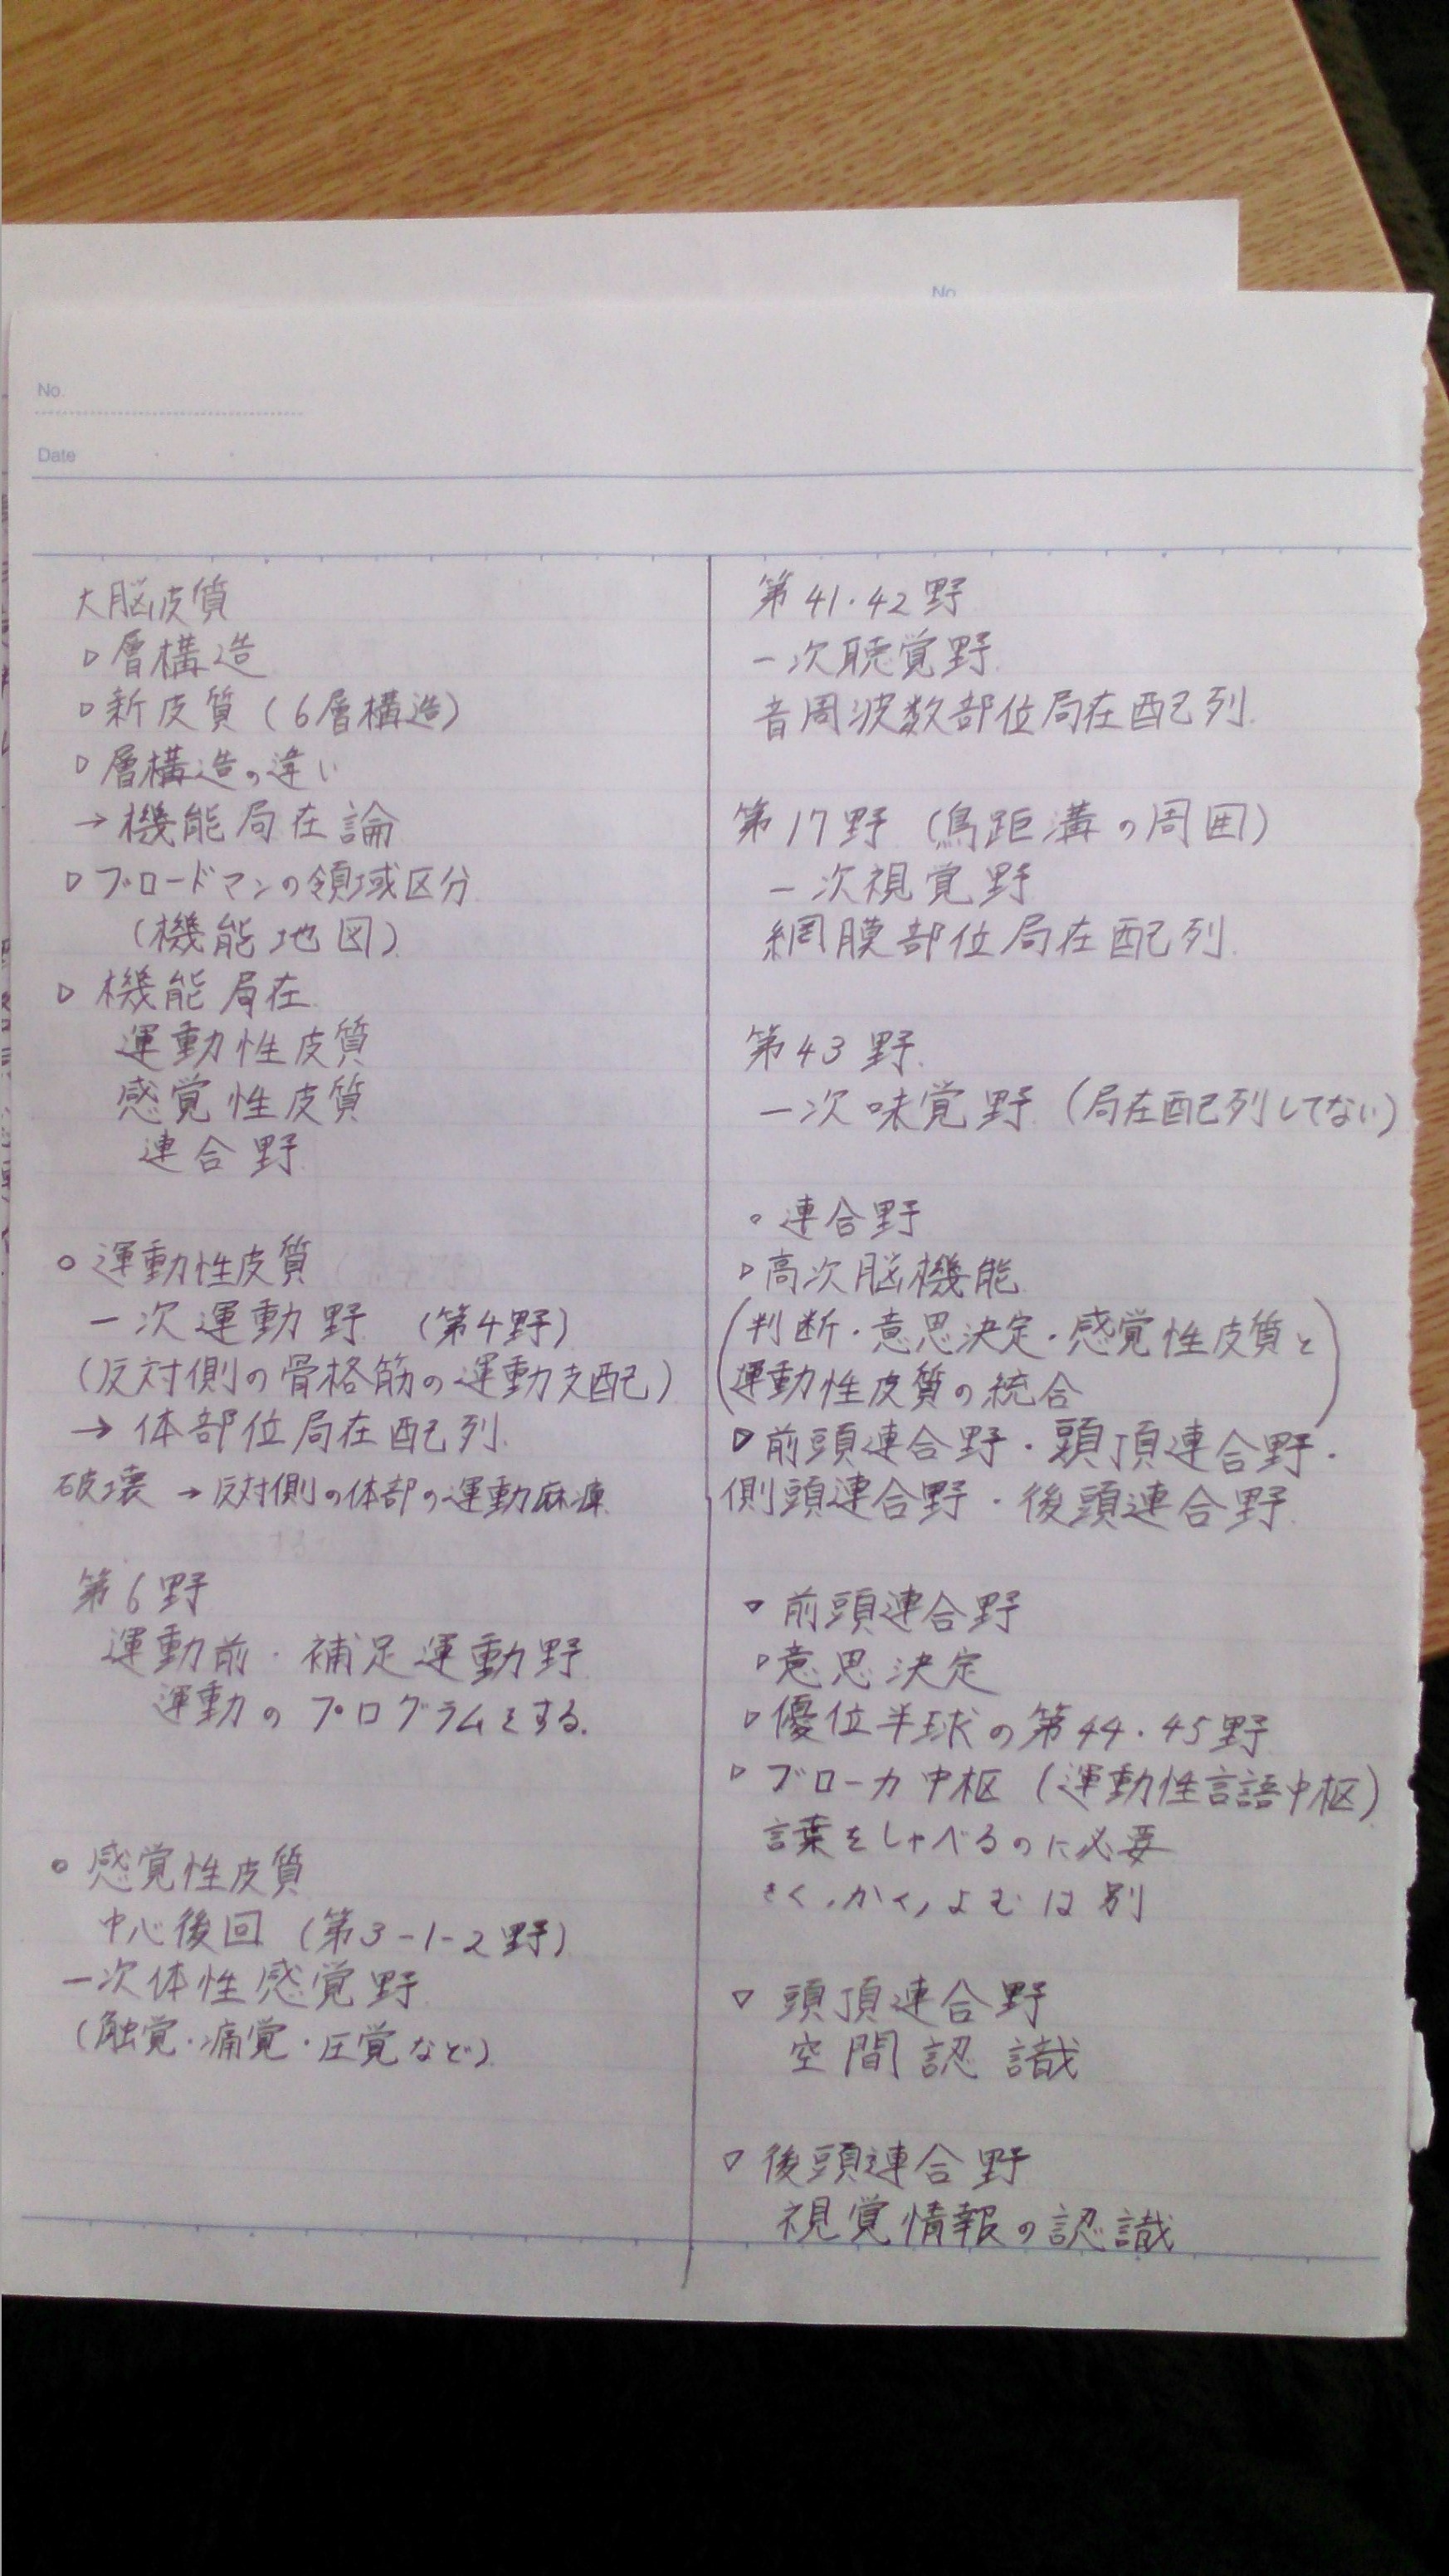 No
No.
Date
大脳皮質
▷層構造
▷新皮質(6層構造)
▷層構造の違い
→機能局在論
▷ブロードマンの領域区分
(機能地図)
▷機能局在
運動性皮質
感覚性皮質
連合野
○運動性皮質
一次運動野(第4野)
(反対側の骨格筋の運動支配)
→体部位局在配列
破壊→反対側の体部の運動麻痺
第6野
運動前・補足運動野
運動のプログラムをする.
○感覚性皮質
中心後回(第3-1-2野)
一次体性感覚野
(触覚・痛覚・圧覚など)
第41・42野
一次聴覚野
音周波数部位局在配列
第17野(鳥距溝の周囲)
一次視覚野
網膜部位局在配列
第43野
一次味覚野(局在配列してない)
○連合野
▷高次脳機能
(判断・意思決定・感覚性皮質と
運動性皮質の統合)
▷前頭連合野・頭頂連合野・
側頭連合野・後頭連合野
▽前頭連合野
▷意思決定
▷優位半球の第44・45野
▷ブローカ中枢(運動性言語中枢)
言葉をしゃべるのに必要
きく,かく,よむは別
▽頭頂連合野
空間認識
▽後頭連合野
視覚情報の認識